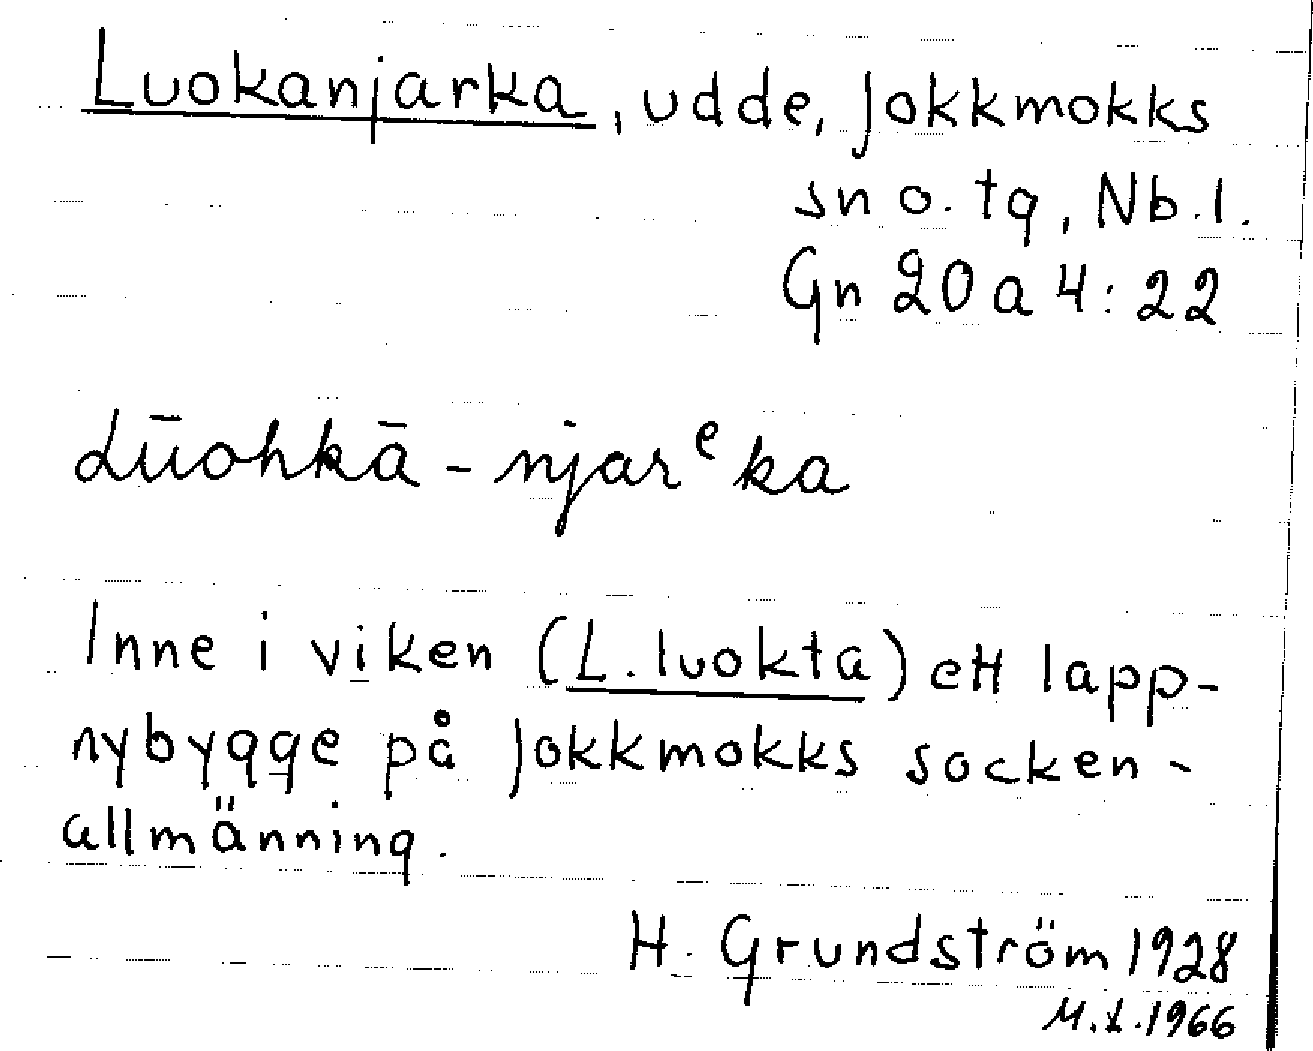 Luokanjarka, udde, Jokkmokks
sn o. tg, Nb.l.
Gn 20 a 4:22
Lūohkā-njarᵉka
Inne i viken (L. luokta) ett lapp-
nybygge på Jokkmokks socken-
allmänning.
H. Grundström 1928
M.L. 1966